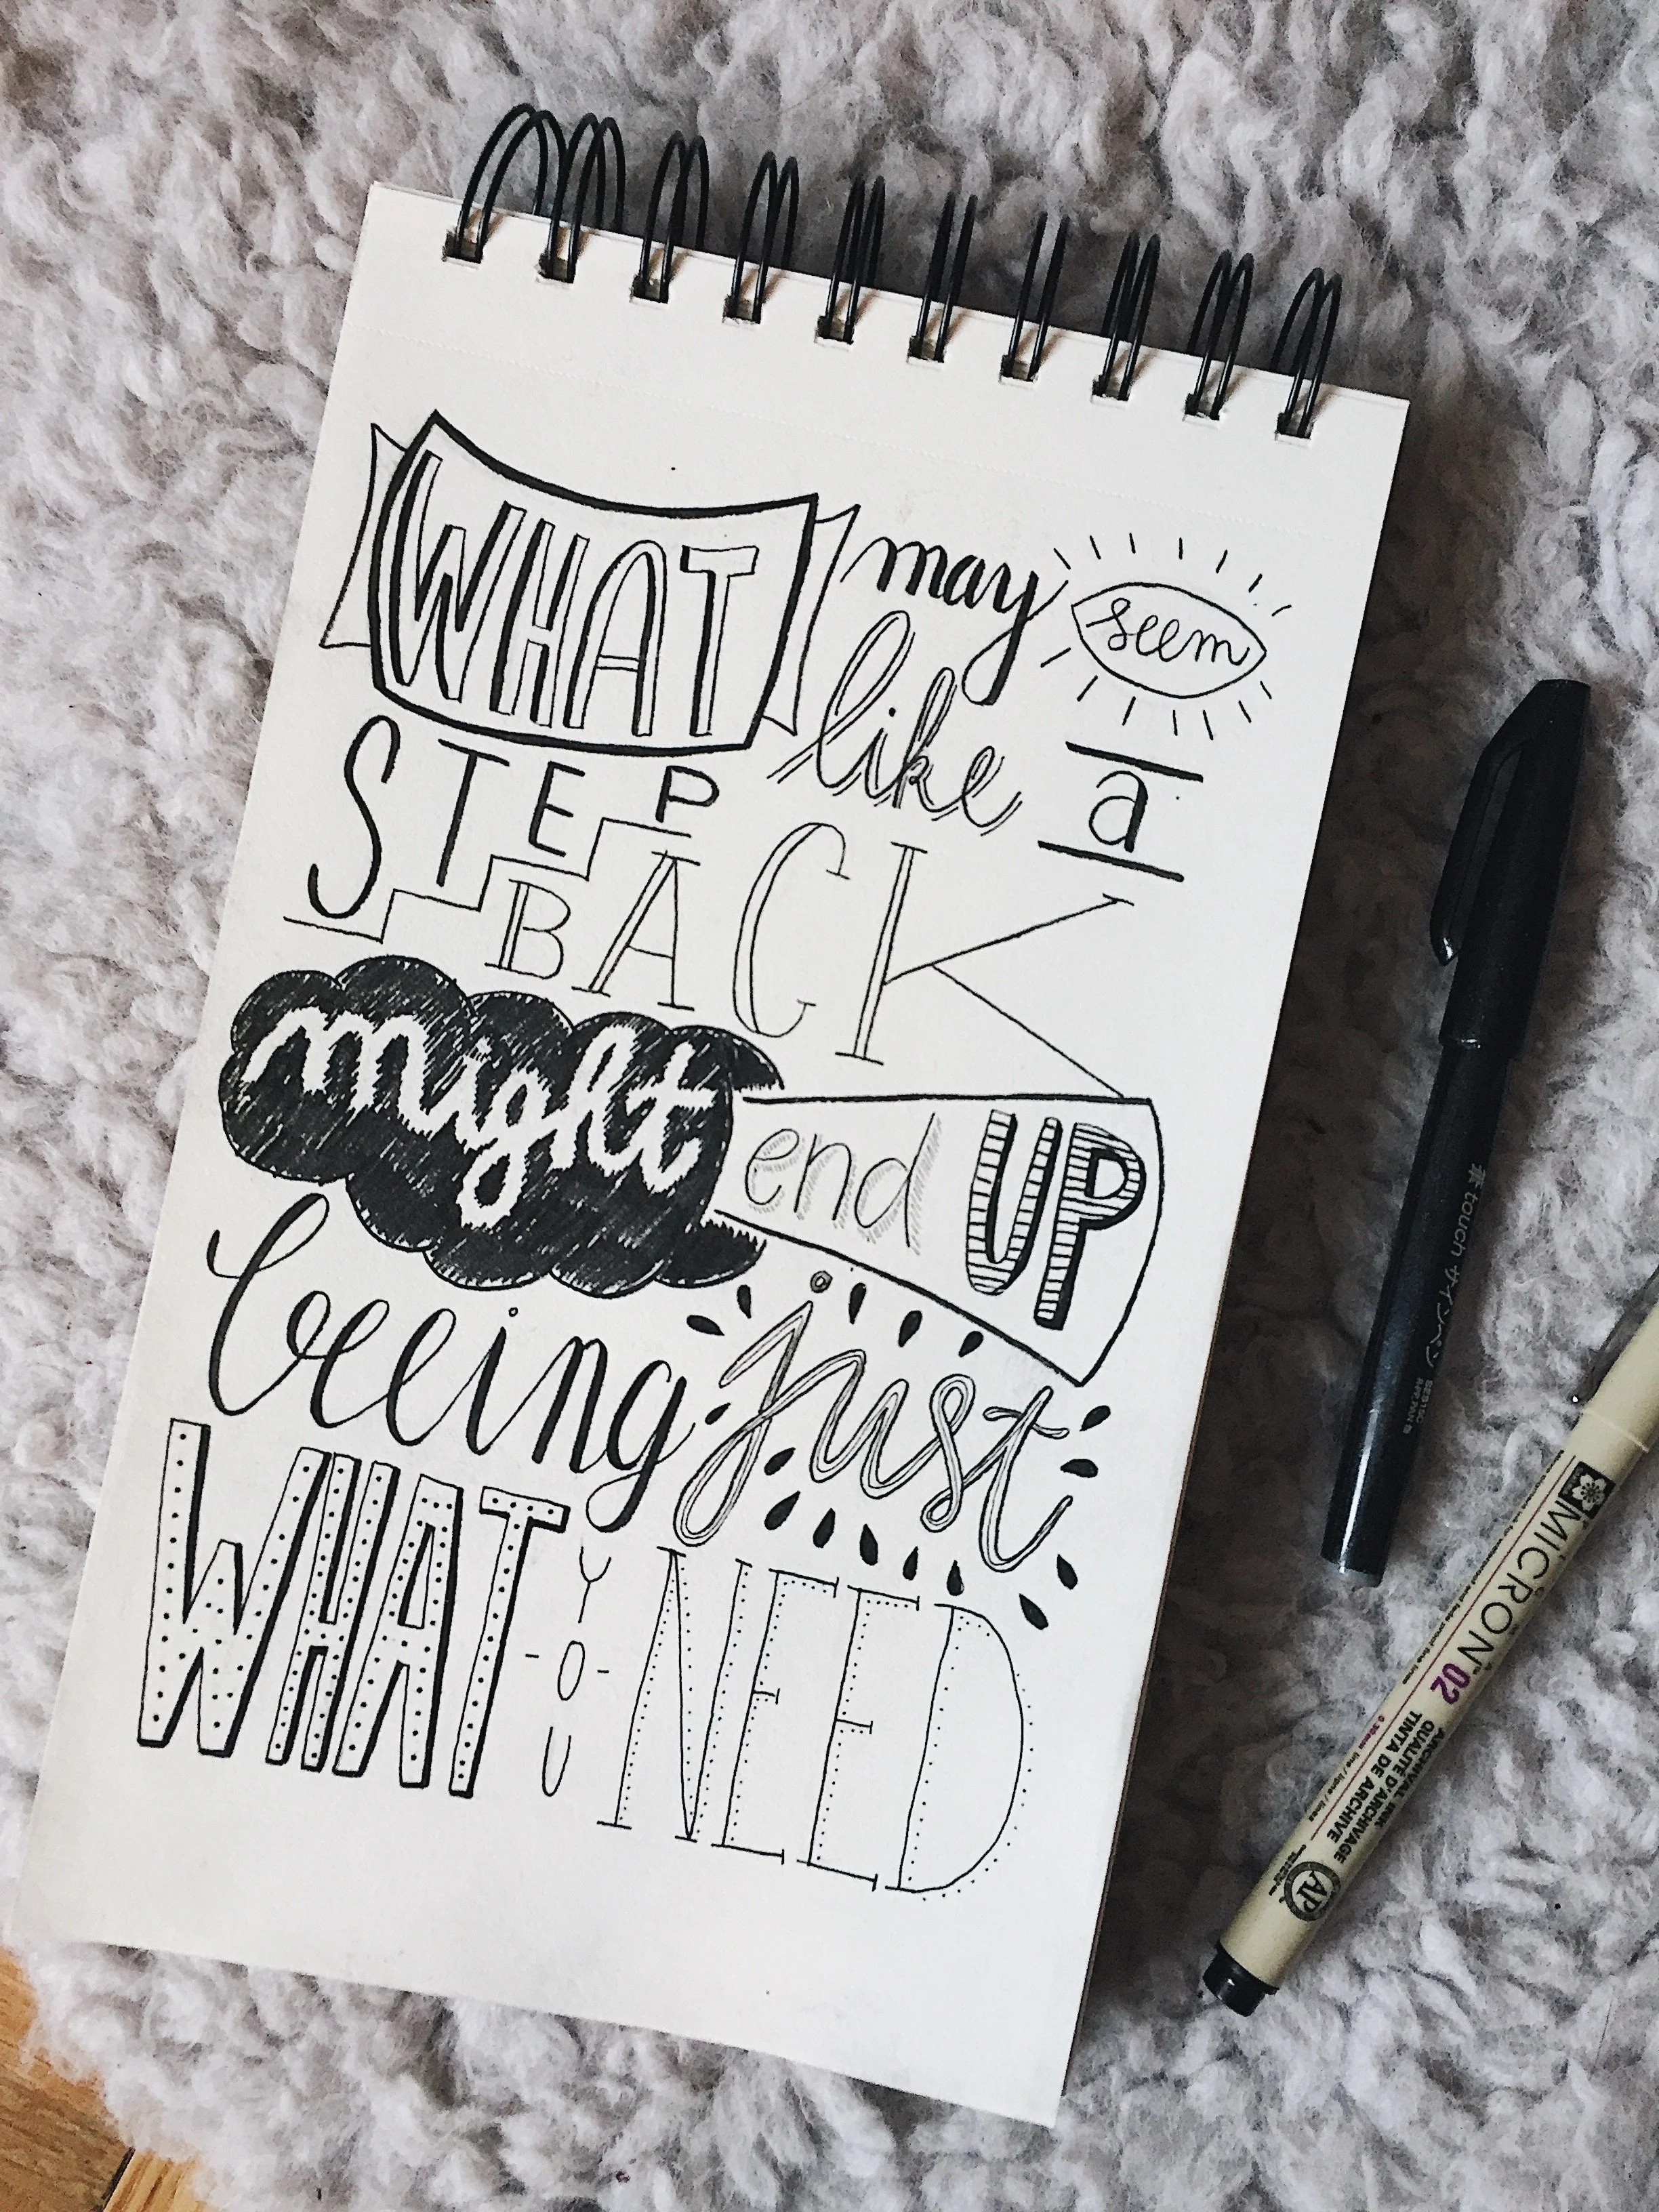 WHAT may seem
like a
STEP
BACK
might end UP
being just
WHAT YOU NEED
touch サインペン
MICRON™ 02
ARCHIVAL INK
QUALITÉ D'ARCHIVAGE
TINTA DE ARCHIVE
AP